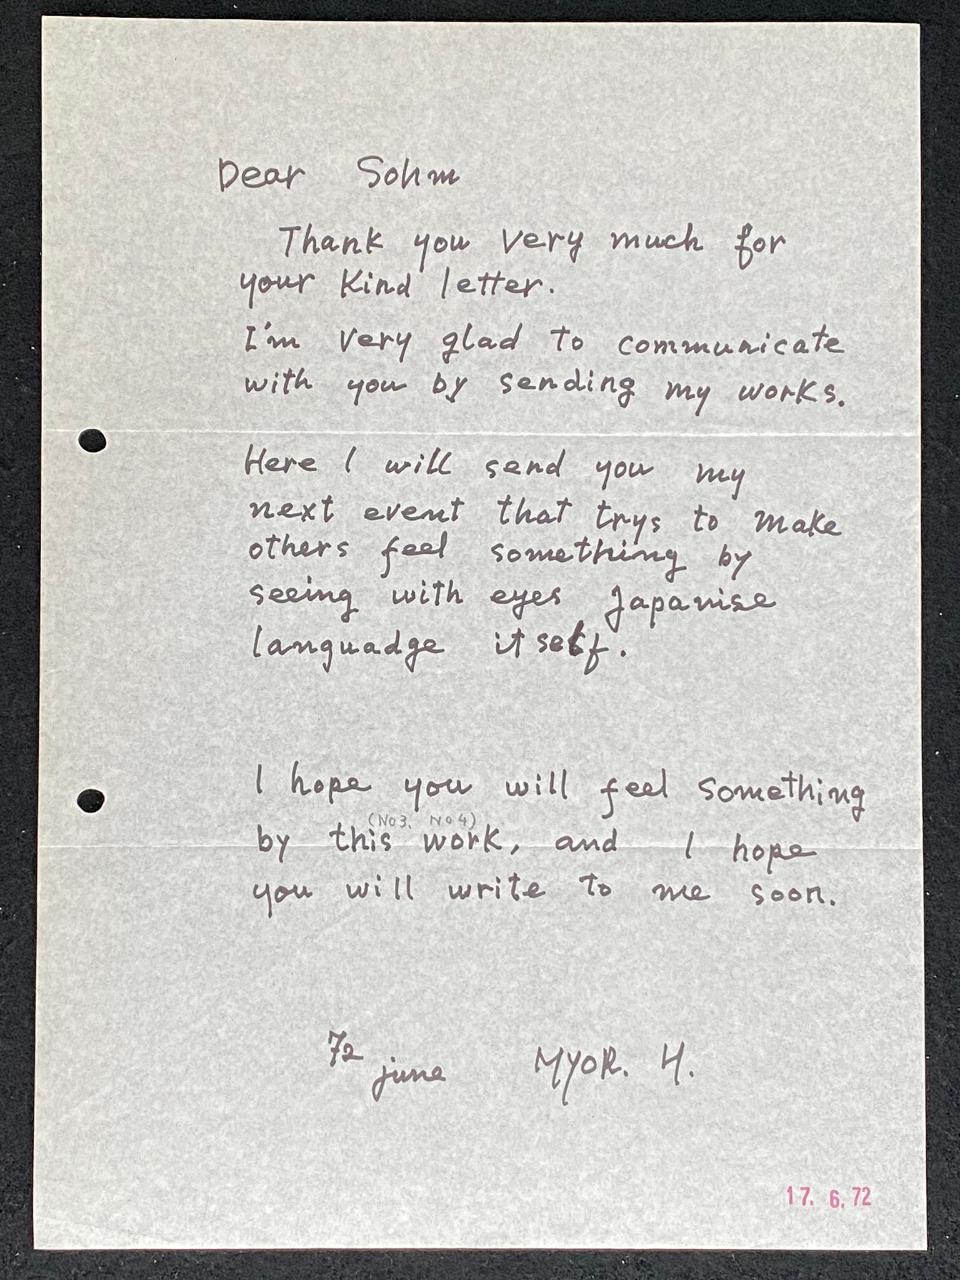 Dear Sohm
Thank you very much for
your kind letter.
I'm very glad to communicate
with you by sending my works.
Here I will send you my
next event that trys to make
others feel something by
seeing with eyes Japanise
languadge itself.
I hope you will feel something
(No3. No4)
by this work, and I hope
you will write to me soon.
72 june MYOR. H.
17. 6. 72